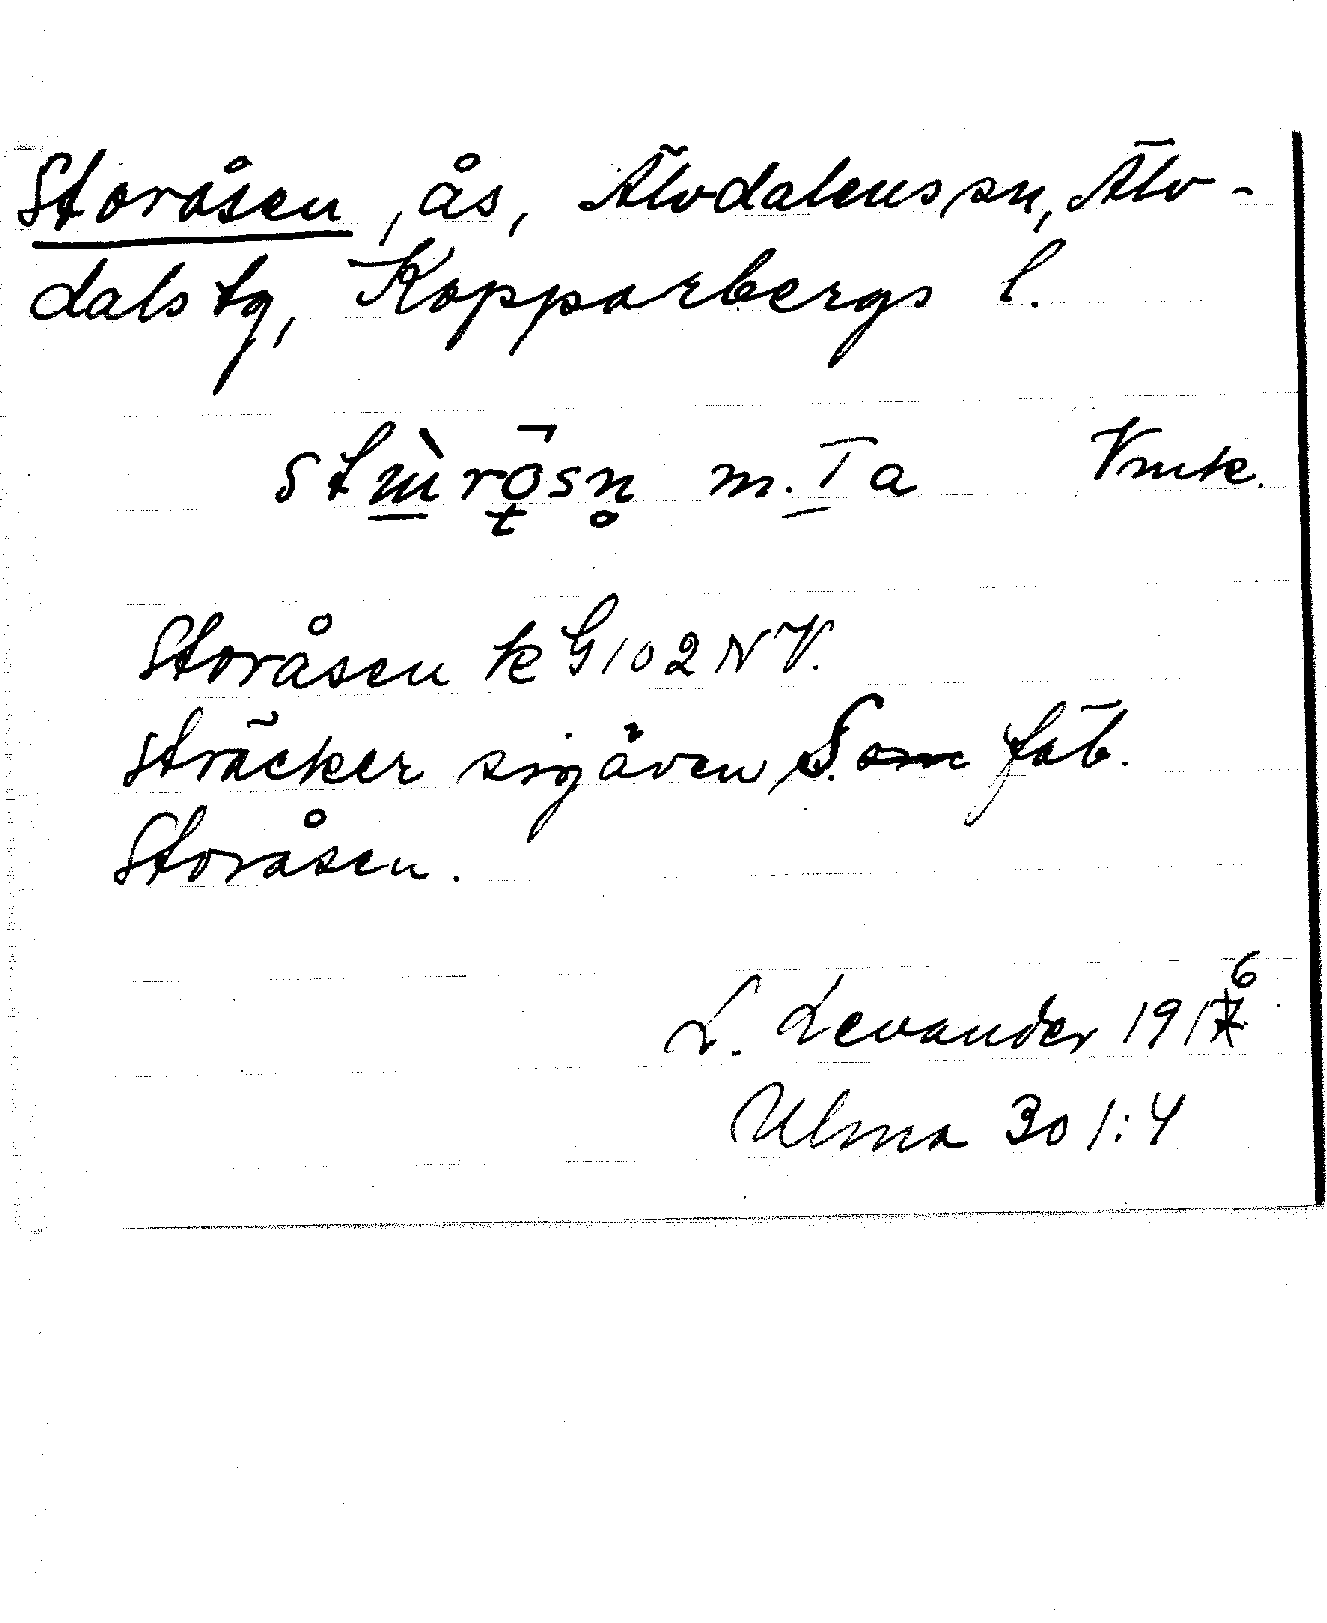 Storåsen, ås, Älvdalens sn, Älv-
dals tg, Kopparbergs l.
m. I a Vmk.
Storåsen k G 102 NV.
sträcker sig även S. om fäb.
Storåsen.
L. Levander 1916
Ulma 301:4